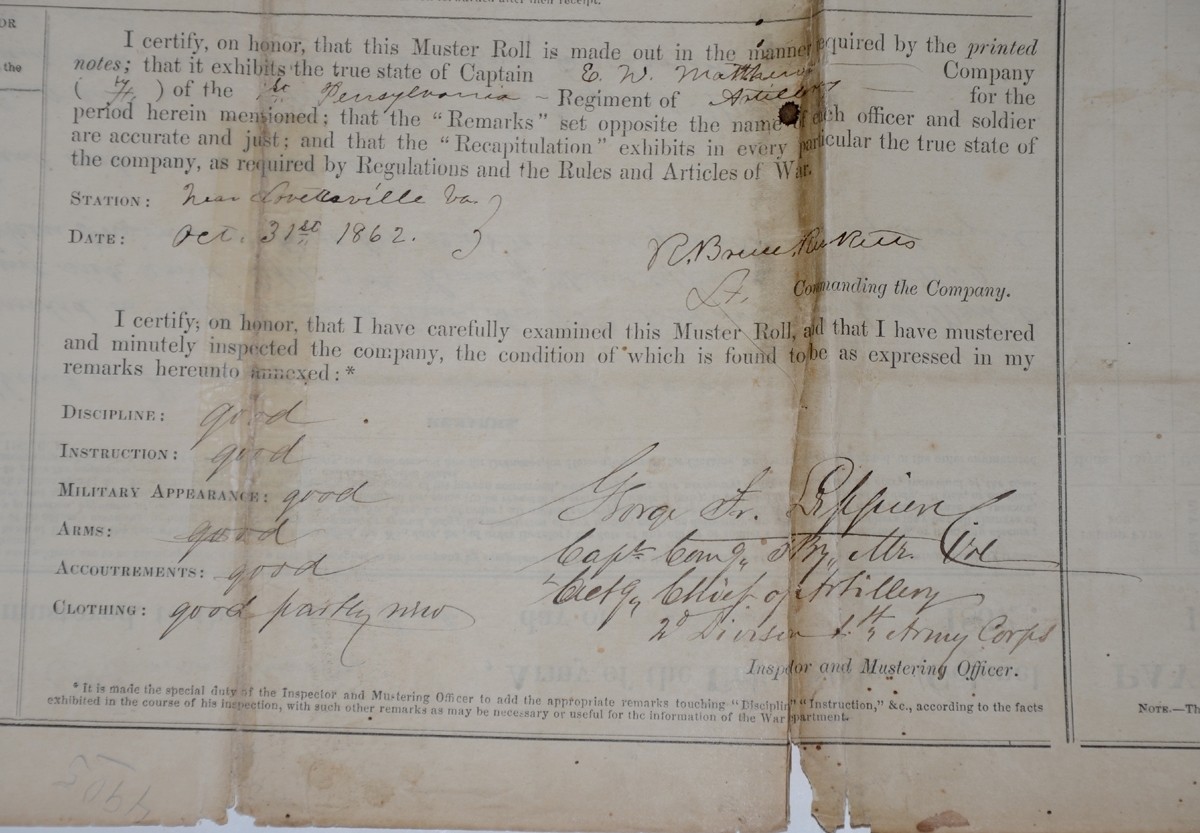 after their receipt.
OR
the
I certify, on honor, that this Muster Roll is made out in the manner required by the printed
notes; that it exhibits the true state of Captain E. W. Matthews Company
( F ) of the 1st Pensylvania - Regiment of Artillery for the
period herein mentioned; that the "Remarks" set opposite the name of each officer and soldier
are accurate and just; and that the "Recapitulation" exhibits in every particular the true state of
the company, as required by Regulations and the Rules and Articles of War.
STATION: Near Lovettsville Va.
DATE: Oct. 31st 1862.
R. Bruce Ricketts
Lt. Commanding the Company.
I certify, on honor, that I have carefully examined this Muster Roll, and that I have mustered
and minutely inspected the company, the condition of which is found to be as expressed in my
remarks hereunto annexed: *
DISCIPLINE: good
INSTRUCTION: good
MILITARY APPEARANCE: good
ARMS: good
ACCOUTREMENTS: good
CLOTHING: good partly new
George F. Leppien
Capt. Comg. 5th Batty. Me. Vol
Actg. Chief of Artillery
2d Division 1st Army Corps
Inspector and Mustering Officer.
* It is made the special duty of the Inspector and Mustering Officer to add the appropriate remarks touching "Discipline," "Instruction," &c., according to the facts
exhibited in the course of his inspection, with such other remarks as may be necessary or useful for the information of the War Department.
NOTE.—Th